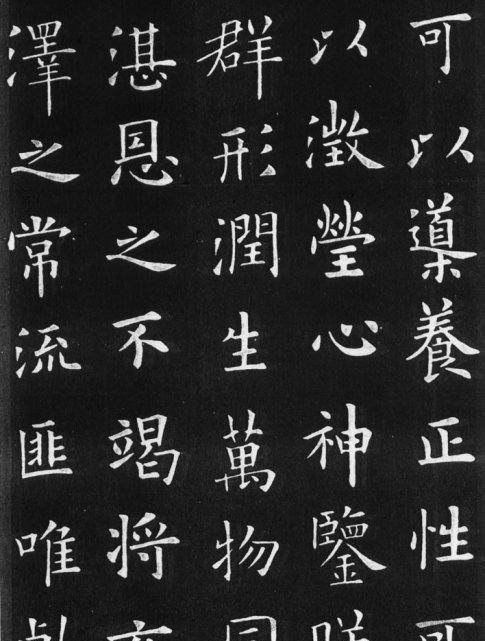 可以導養正性
以澂瑩心神鑒
群形潤生萬物
湛恩之不竭將
澤之常流匪唯